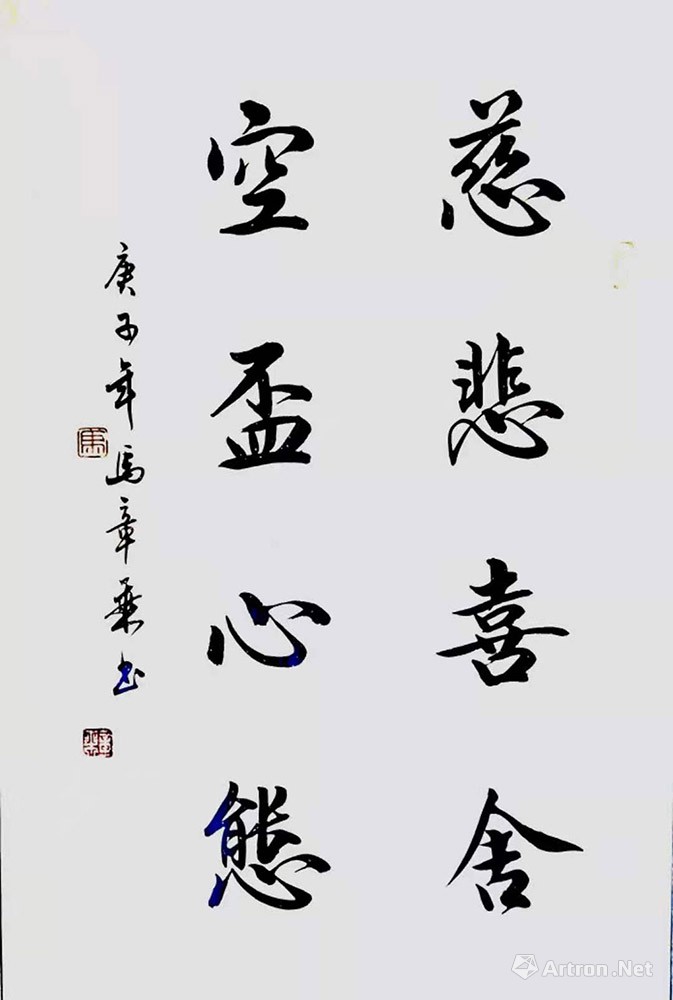 慈悲喜舍
空盃心態
庚子年馬章乘书
Artron.Net